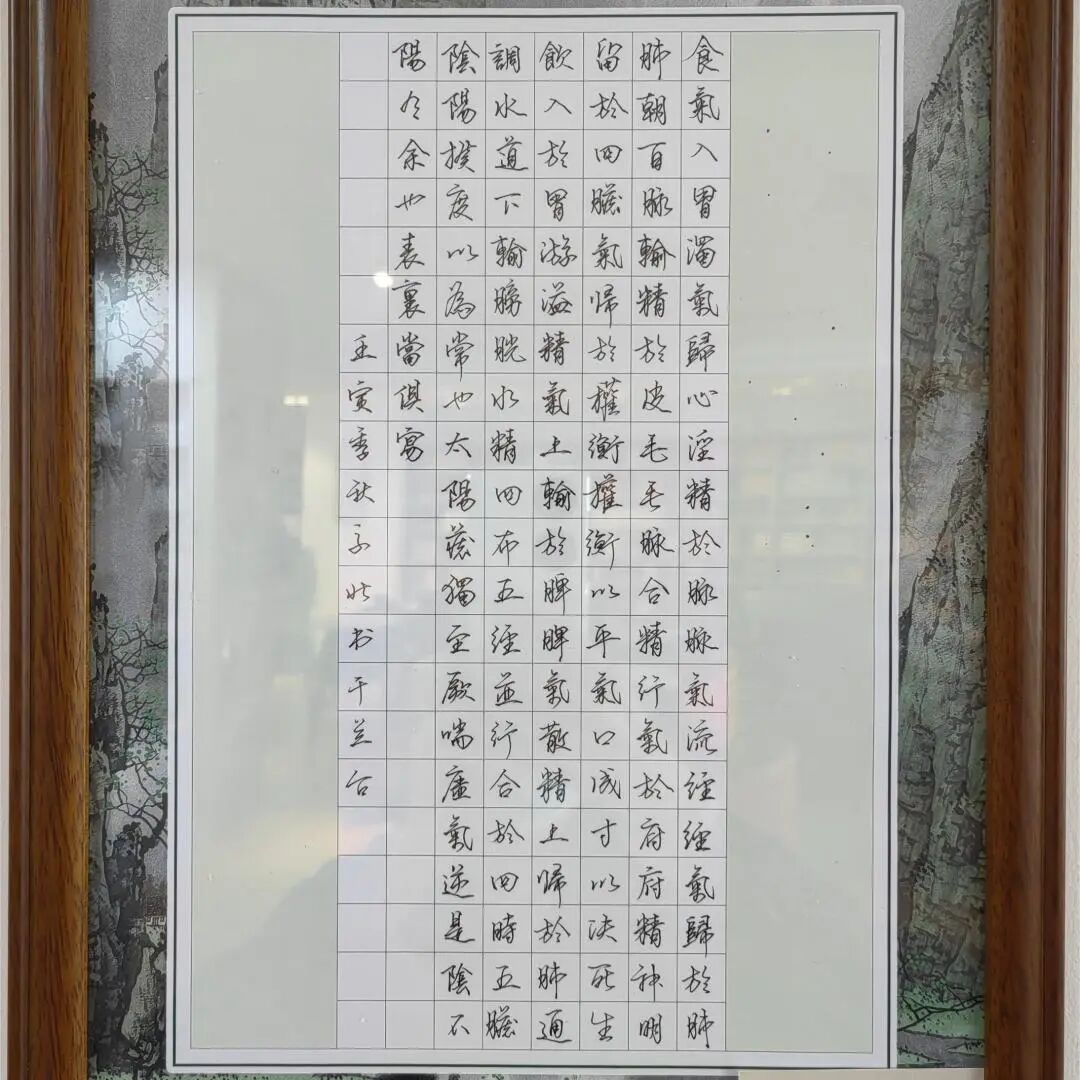 食氣入胃濁氣歸心淫精於脉脉氣流經經氣歸於肺
肺朝百脉輸精於皮毛毛脉合精行氣於府府精神明
留於四臓氣帰於權衡權衡以平氣口成寸以决死生
飲入於胃游溢精氣上輸於脾脾氣散精上帰於肺通
調水道下輸膀胱水精四布五經並行合於四時五臓
陰陽揆度以為常也太陽蔵獨至厥喘虛氣逆是陰不
陽有余也表裏當俱寫
壬寅季秋子书于兰台